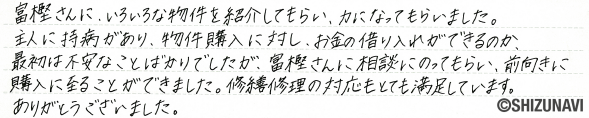 富樫さんに、いろいろな物件を紹介してもらい、力になってもらいました。
主人に持病があり、物件購入に対し、お金の借り入れができるのか、
最初は不安なことばかりでしたが、富樫さんに相談にのってもらい、前向きに
購入に至ることができました。修繕修理の対応もとても満足しています。
ありがとうございました。
©SHIZUNAVI